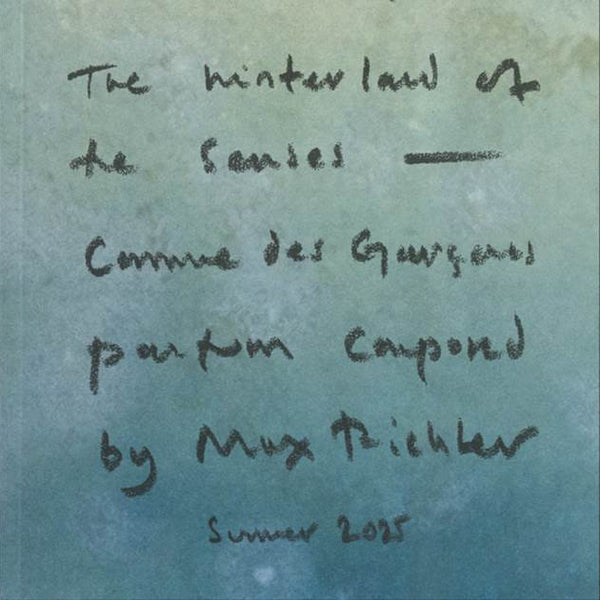 The hinterland of
the senses —
Comme des Garçons
parfum compond
by Max Richter
Summer 2025